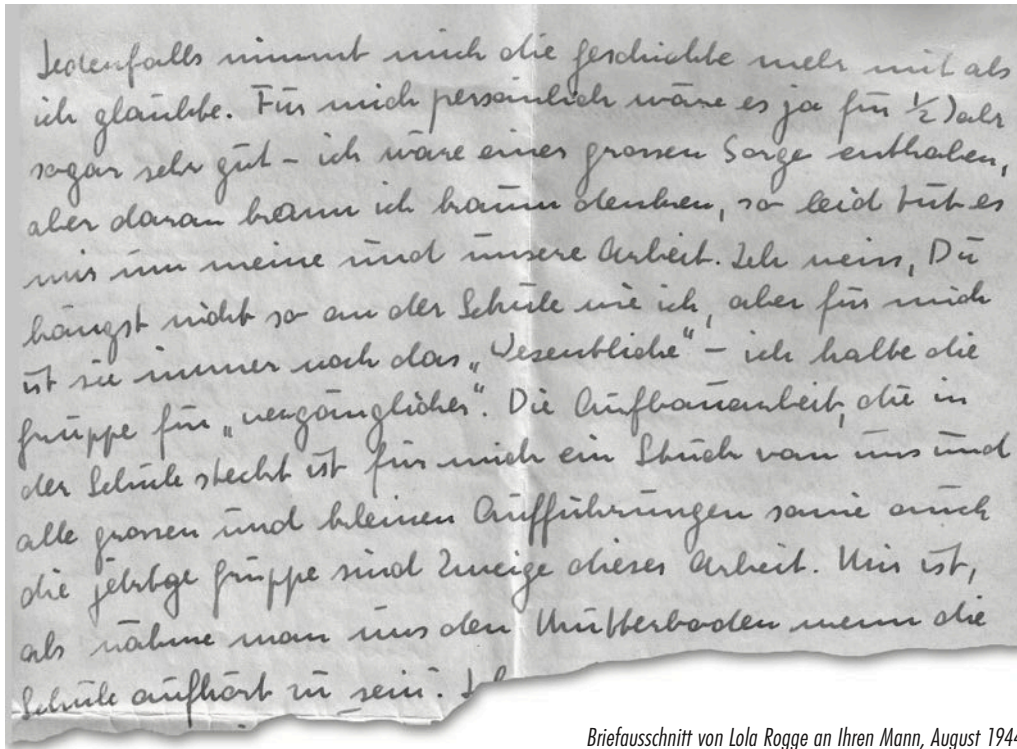 Jedenfalls nimmt mich die Geschichte mehr mit als
ich glaubte. Für mich persönlich wäre es ja für ½ Jahr
sogar sehr gut – ich wäre einer grossen Sorge enthoben,
aber daran kann ich kaum denken, so leid tut es
mir um meine und unsere Arbeit. Ich weiss, Du
hängst nicht so an der Schule wie ich, aber für mich
ist sie immer noch das „Wesentliche“ – ich halte die
Gruppe für „vergänglicher“. Die Aufbauarbeit, die in
der Schule steckt ist für mich ein Stück von uns und
alle grossen und kleinen Aufführungen sowie auch
die jetzige Gruppe sind Zweige dieser Arbeit. Mir ist,
als nähme man uns den Mutterboden wenn die
Schule aufhört zu sein.
Briefausschnitt von Lola Rogge an Ihren Mann, August 1944